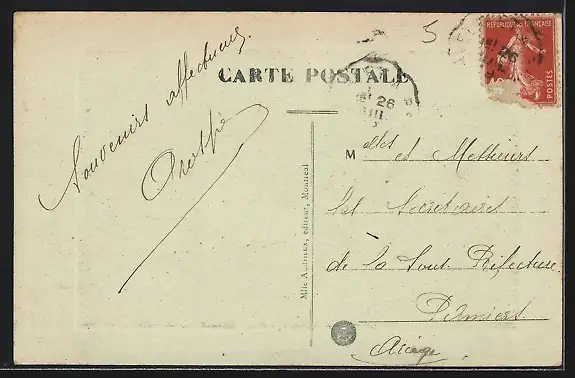 5
REPUBLIQUE FRANÇAISE
POSTES
CARTE POSTALE
26
Souvenirs affectueux
Mlle Audrieux, éditeur, Montreal
Melles et Messieurs
les Secrétaires
de la Sous Préfecture
Pamiers
Ariège